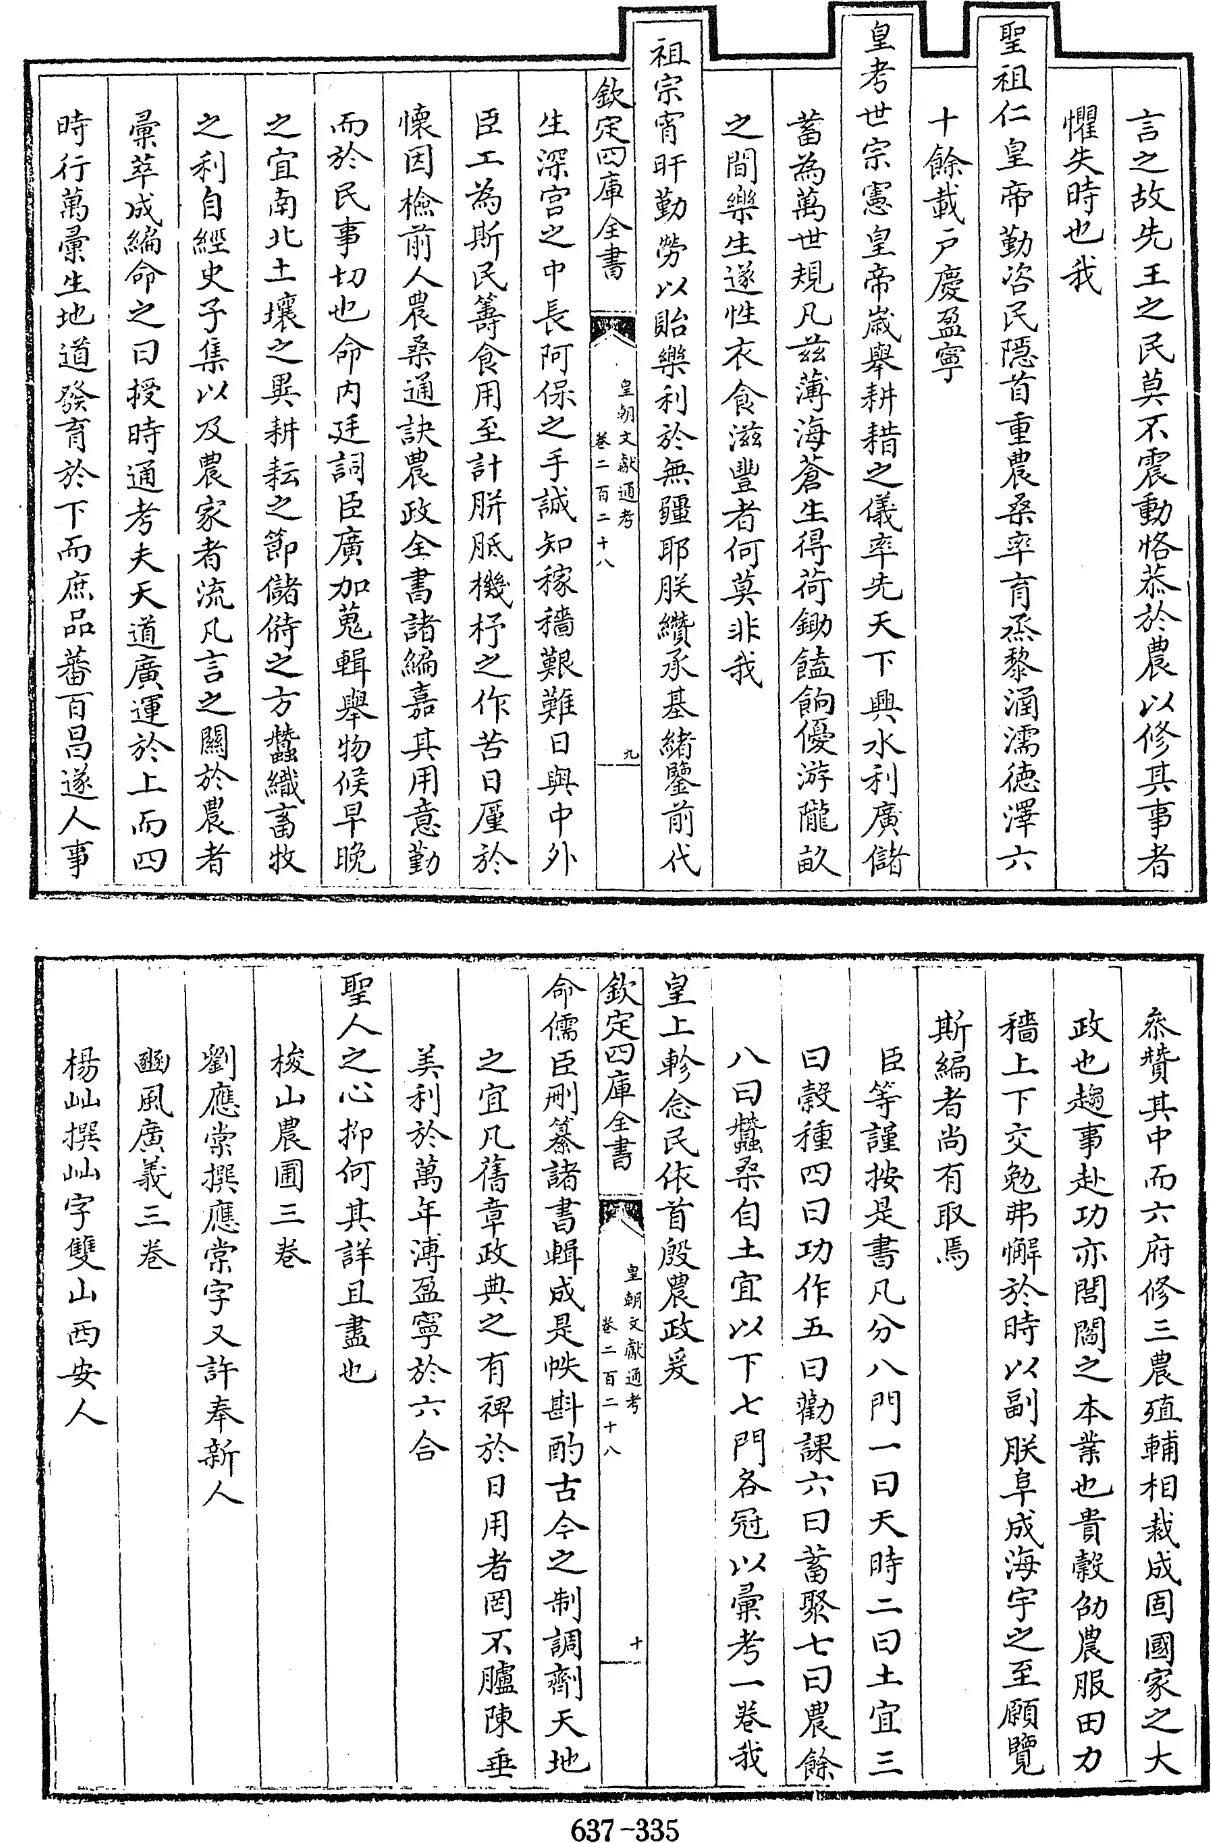 言之故先王之民莫不震動恪恭於農以修其事者
懼失時也我
聖祖仁皇帝勤咨民隱首重農桑率育烝黎涵濡德澤六
十餘載戶慶盈寧
皇考世宗憲皇帝歲舉耕耤之儀率先天下興水利廣儲
蓄為萬世規凡茲薄海蒼生得荷鋤饁餉優游隴畝
之間樂生遂性衣食滋豐者何莫非我
祖宗宵旰勤勞以貽樂利於無疆耶朕纘承基緒鑒前代
欽定四庫全書
皇朝文獻通考
卷二百二十八
九
生深宮之中長阿保之手誠知稼穡艱難日與中外
臣工為斯民籌食用至計胼胝機杼之作苦日厪於
懷因檢前人農桑通訣農政全書諸編嘉其用意勤
而於民事切也命內廷詞臣廣加蒐輯舉物候早晚
之宜南北土壤之異耕耘之節儲偫之方蠶織畜牧
之利自經史子集以及農家者流凡言之關於農者
彙萃成編命之曰授時通考夫天道廣運於上而四
時行萬彙生地道發育於下而庶品蕃百昌遂人事
叅贊其中而六府修三農殖輔相裁成固國家之大
政也趨事赴功亦閭閻之本業也貴穀劭農服田力
穡上下交勉弗懈於時以副朕阜成海宇之至願覽
斯編者尚有取焉
臣等謹按是書凡分八門一曰天時二曰土宜三
曰穀種四曰功作五曰勸課六曰蓄聚七曰農餘
八曰蠶桑自土宜以下七門各冠以彙考一卷我
皇上軫念民依首殷農政爰
欽定四庫全書
皇朝文獻通考
卷二百二十八
十
命儒臣刪纂諸書輯成是帙斟酌古今之制調劑天地
之宜凡舊章政典之有裨於日用者罔不臚陳垂
美利於萬年溥盈寧於六合
聖人之心抑何其詳且盡也
梭山農圃三卷
劉應棠撰應棠字又許奉新人
豳風廣義三卷
楊屾撰屾字雙山西安人
637-335